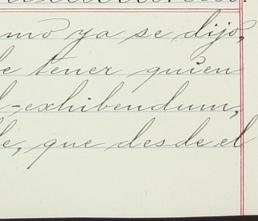 mo ya se dijo,
tener quien
-exhibendum,
le, que desde el